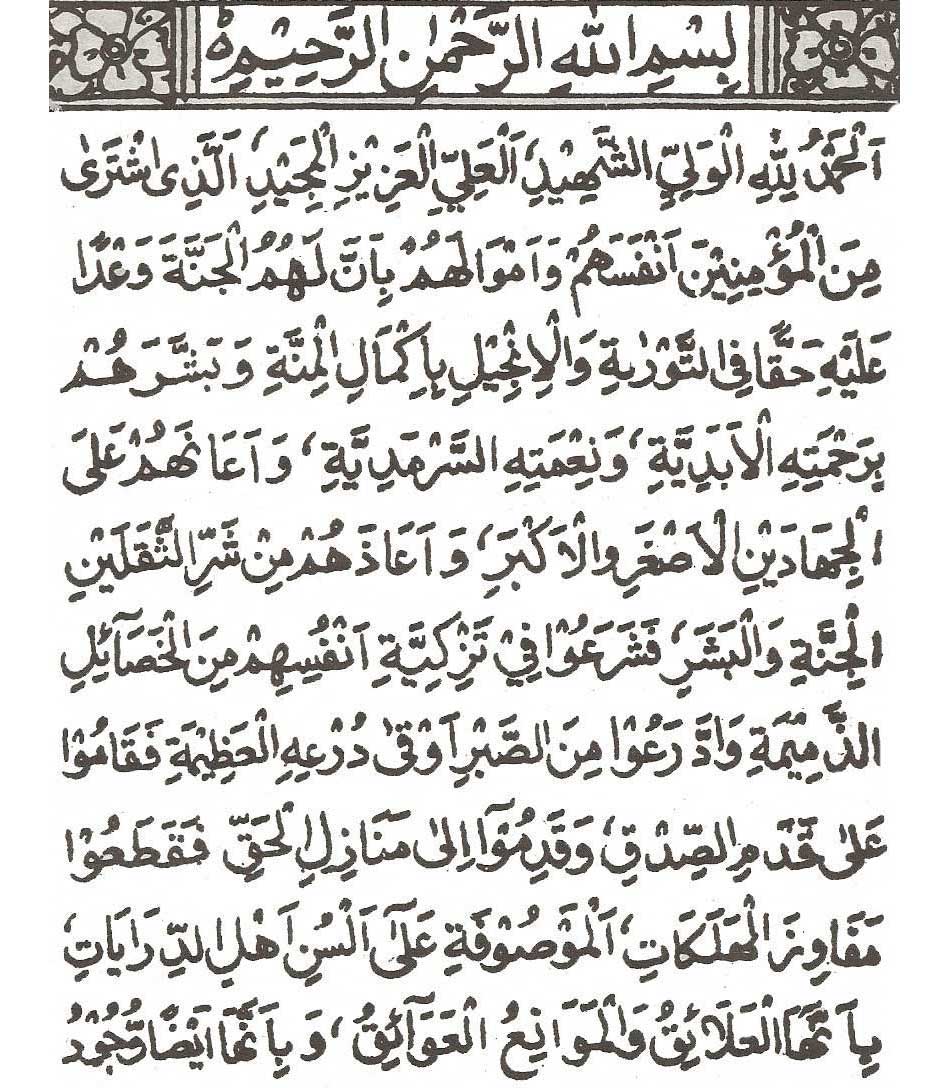 بِسْمِ اللهِ الرَّحْمٰنِ الرَّحِيْمِ
اَلْحَمْدُ لِلّٰهِ الْوَلِيِّ الشَّهِيْدِ، اَلْعَلِيِّ الْعَزِيْزِ الْمَجِيْدِ، اَلَّذِى اشْتَرٰى
مِنَ الْمُؤْمِنِيْنَ اَنْفُسَهُمْ وَاَمْوَالَهُمْ بِاَنَّ لَهُمُ الْجَنَّةَ وَعْدًا
عَلَيْهِ حَقًّا فِى التَّوْرٰىةِ وَالْاِنْجِيْلِ بِاِكْمَالِ الْمِنَّةِ وَبَشَّرَهُمْ
بِرَحْمَتِهِ الْاَبَدِيَّةِ، وَنِعْمَتِهِ السَّرْمَدِيَّةِ، وَاَعَانَهُمْ عَلَى
الْجِهَادَيْنِ الْاَصْغَرِ وَالْاَكْبَرِ، وَاَعَاذَهُمْ مِنْ شَرِّ الثَّقَلَيْنِ
الْجِنَّةِ وَالْبَشَرِ، فَشَرَعُوْا فِيْ تَزْكِيَّةِ اَنْفُسِهِمْ مِنَ الْخَصَآئِلِ
الذَّمِيْمَةِ وَادَّرَعُوْا مِنَ الصَّبْرِ اَوْقٰى دُرْعِهِ الْعَظِيْمَةِ فَقَامُوْا
عَلٰى قَدَمِ الصِّدْقِ، وَقَدِمُوْآ اِلٰى مَنَازِلِ الْحَقِّ فَقَطَعُوْا
مَفَاوِزَ الْمَهْلَكَاتِ، اَلْمَوْصُوْفَةِ عَلٰٓى اَلْسُنِ اَهْلِ الدِّرَايَاتِ،
بِاَنَّهَا الْعَلَائِقُ وَالْمَوَانِعُ الْعَوَآئِقُ، وَبِاَنَّهَا اَيْضًا وُّجُوْدُ